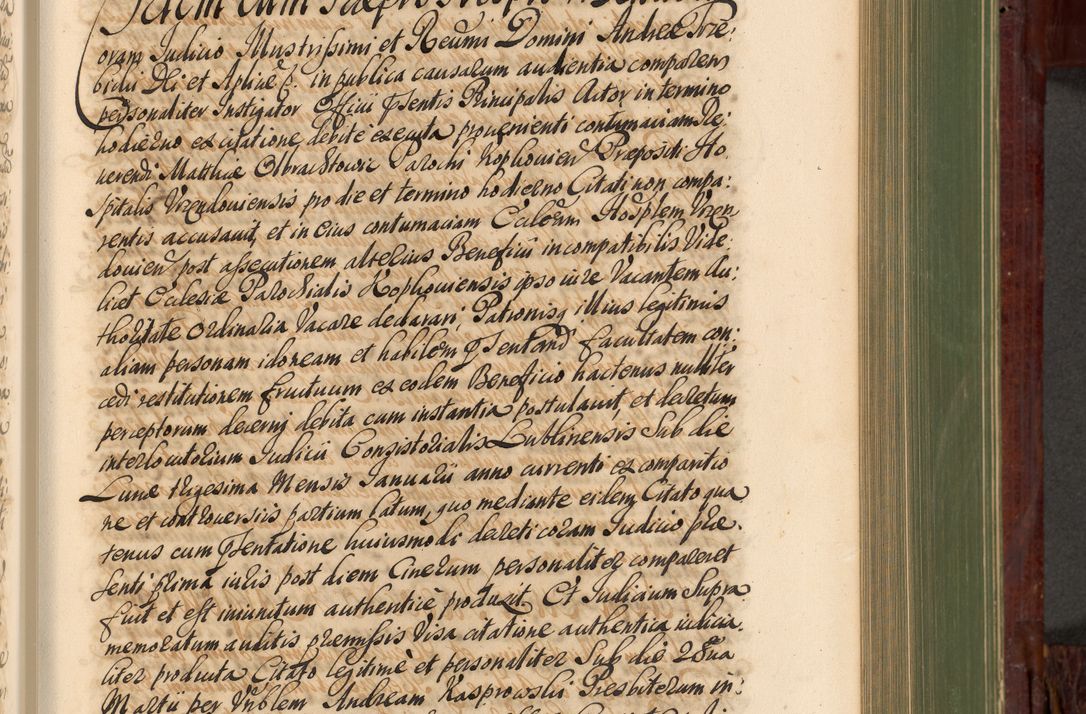 oram Judicio Illustrissimi et Reverendissimi Domini Andreæ Trze:
bicki Dei et Aplicæ G. in publica causarum audientia comparens
personaliter Instigator Officii Psentis Principalis Actor in termino
hodierno ex citatione debite executa provenienti contumaciam Re:
verendi Matthiæ Olbrachtowic Parochi Kophovien Præpositi Ho
spitalis Vrzendoviensis pro die et termino hodierno Citati non compa:
rentis accusavit, et in eius contumaciam Ecclesiam Hosplem Vrzen
dovien post assecutionem alterius Beneficii incompatibilis Vide:
licet Ecclesiæ Parochialis Kophoviensis ipso iure Vacantem Au:
thoritate Ordinaria Vacare declarari, Patronisq illius legitimis
aliam personam idoneam et habilem Psentand facultatem con:
cedi restitutionem fructuum ex eodem Beneficio hactenus nulliter
perceptorum decerni debita cum instantia postulavit, et decretum
interlocutorium Judicii Consistorialis Lublinensis Sub die
Lunæ trigesima Mensis Januarii anno currenti ex comparitio
ne et controversiis partium latum, quo mediante eidem Citato qua
tenus cum Psentatione huiusmodi decreti coram Judicio præ:
senti prima iuris post diem Cinerum personaliter compareret
fuit et est iniunctum authenticè produxit. Et Judicium Supra
memoratum auditis præmissis Visa citatione authentica iudicia:
liter producta Citato legitimè et personaliter Sub die 28va
Martii per Vrblem Andream Kasprowski Presbiterum in: